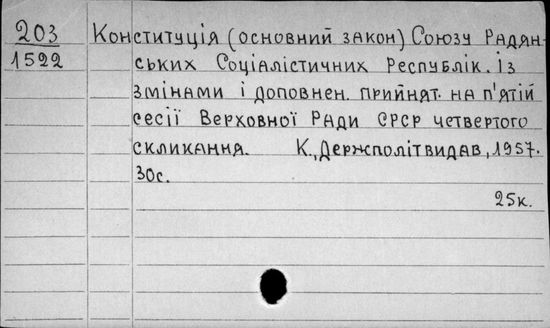 203 Конституція (основний закон) Союзу Радян-
1522 ських Соціалістичних Республік. із
змінами і доповнен. прийнят. на п'ятій
сесії Верховної Ради СРСР четвертого
скликання. К., Держполітвидав, 1957.
30с.
25к.